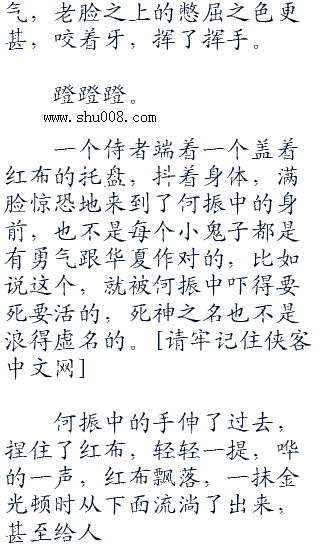 气，老脸之上的憋屈之色更
甚，咬着牙，挥了挥手。
蹬蹬蹬。
www.shu008.com
一个侍者端着一个盖着
红布的托盘，抖着身体，满
脸惊恐地来到了何振中的身
前，也不是每个小鬼子都是
有勇气跟华夏作对的，比如
说这个，就被何振中吓得要
死要活的，死神之名也不是
浪得虚名的。[请牢记住侠客
中文网]
何振中的手伸了过去，
捏住了红布，轻轻一提，哗
的一声，红布飘落，一抹金
光顿时从下面流淌了出来，
甚至给人